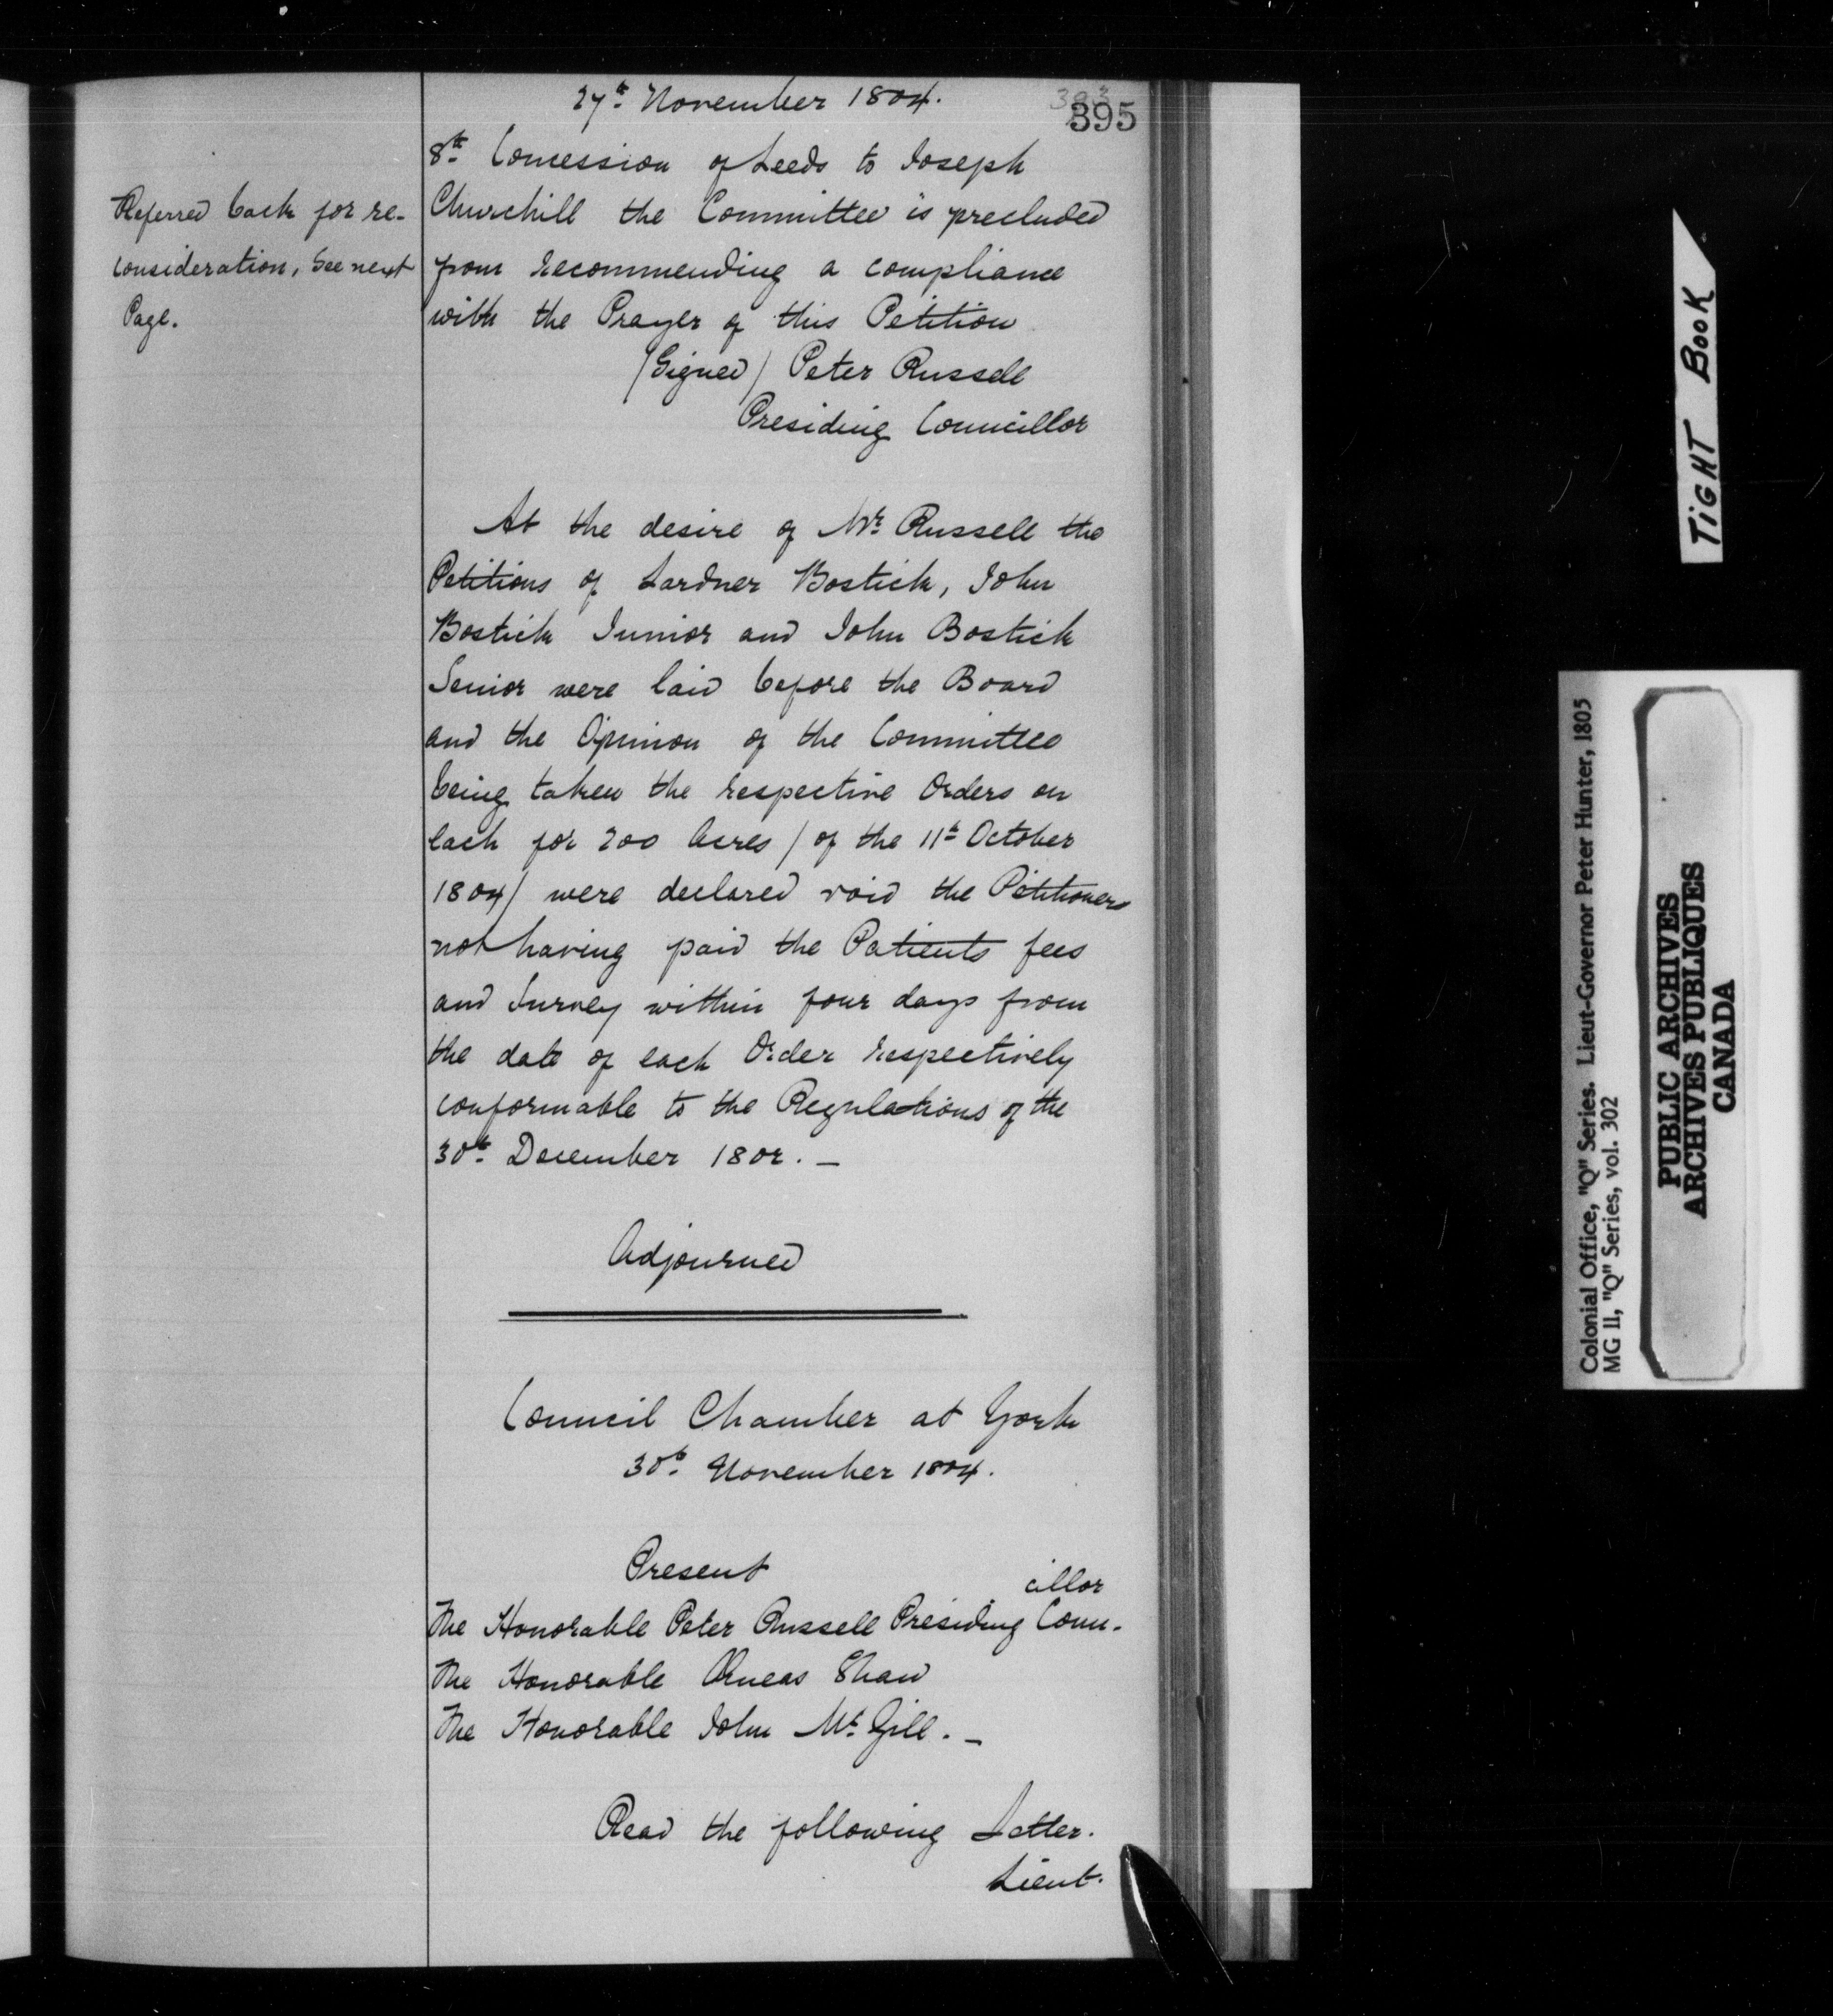 27th November 1804.
393
395
8th Concession of Leeds to Joseph
Churchill the Committee is precluded
from recommending a compliance
with the Prayer of this Petition
(Signed) Peter Russell
Presiding Councillor
Referred back for re-
consideration, See next
Page.
At the desire of Mr. Russell the
Petitions of Lardner Bostick, John
Bostick Junior and John Bostick
Senior were laid before the Board
and the Opinion of the Committee
being taken the respective Orders on
each for 200 Acres / of the 11th October
1804/ were declared void the Petitioners
not having paid the Patients fees
and Survey within four days from
the date of each Order respectively
conformable to the Regulations of the
30th December 1802. -
Adjourned
Council Chamber at York
30th November 1804.
Present
The Honorable Peter Russell Presiding Coun-
cillor
The Honorable Æneas Shaw
The Honorable John McGill. -
Read the following Letter.
Lieut.
TIGHT BOOK
Colonial Office, "Q" Series. Lieut-Governor Peter Hunter, 1805
MG 11, "Q" Series, vol. 302
PUBLIC ARCHIVES
ARCHIVES PUBLIQUES
CANADA